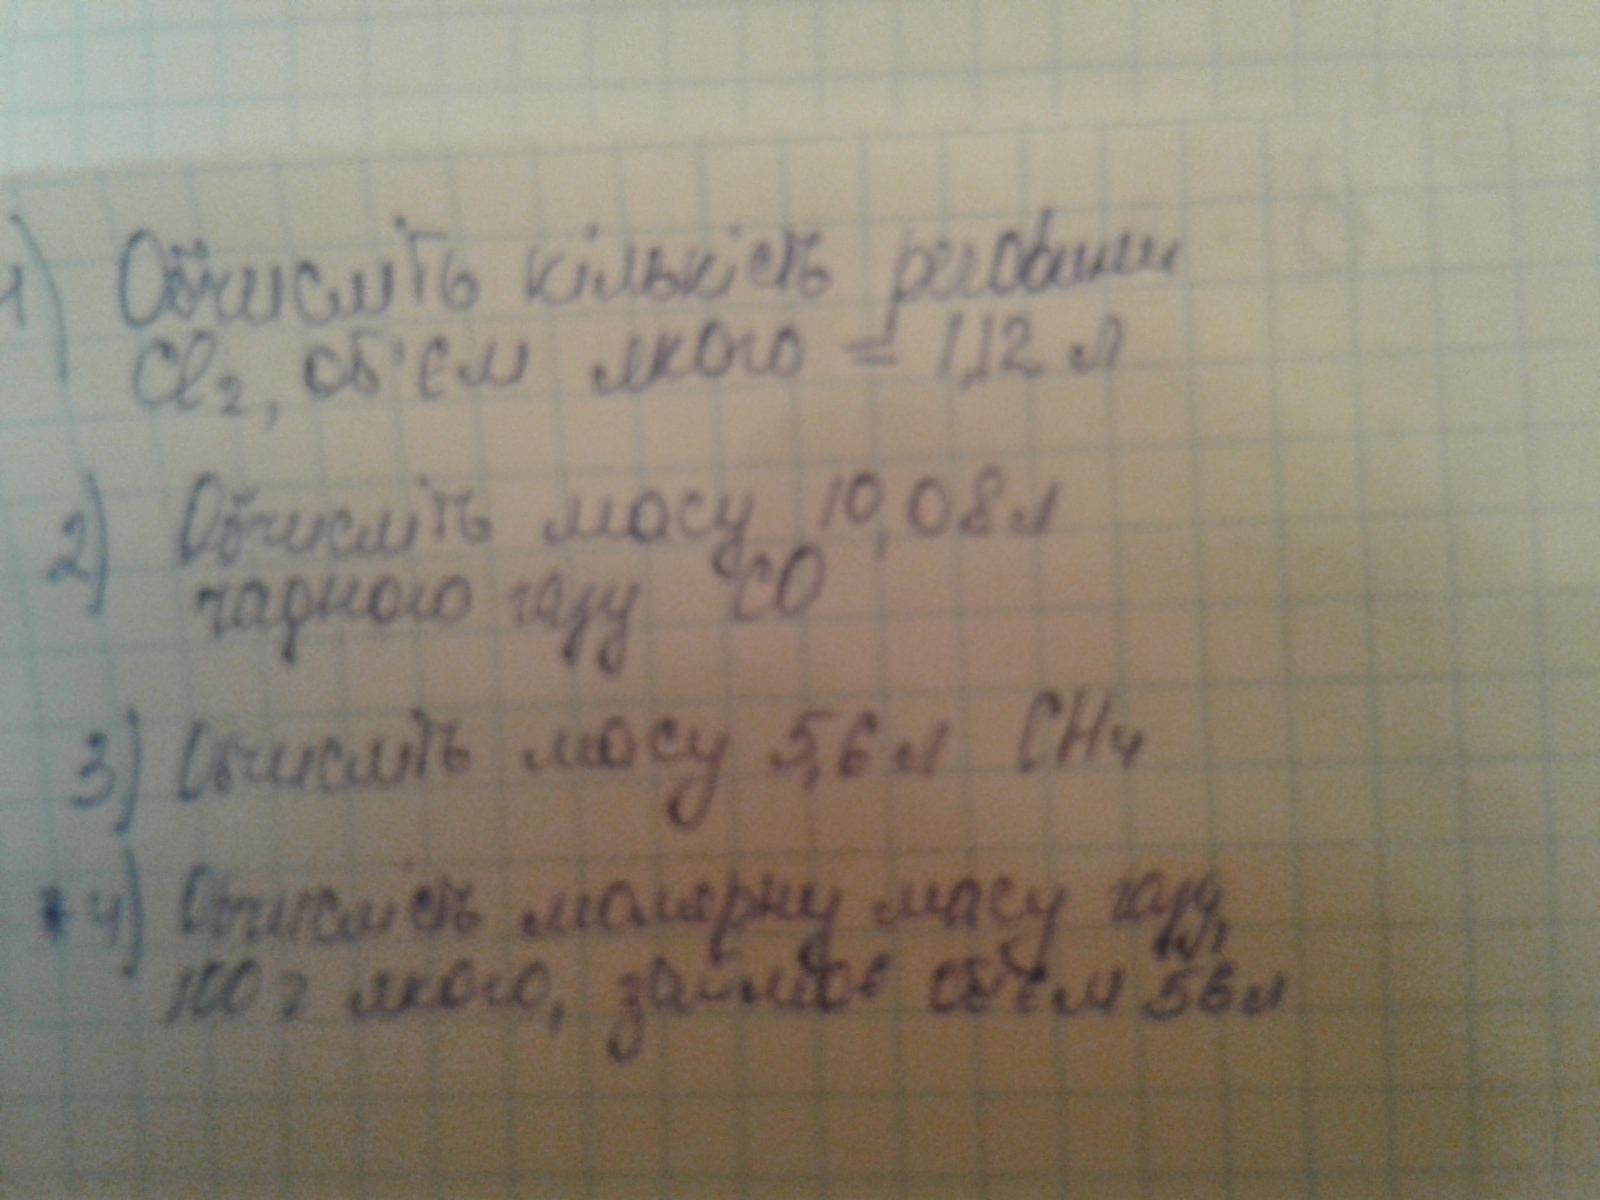 1) Обчисліть кількість речовини
Cl2, об'єм якого = 1,12 л
2) Обчисліть масу 10,08 л
чадного газу CO
3) Обчисліть масу 5,6 л CH4
*4) Обчисліть молярну масу газу,
100 г якого, займає об'єм 56 л